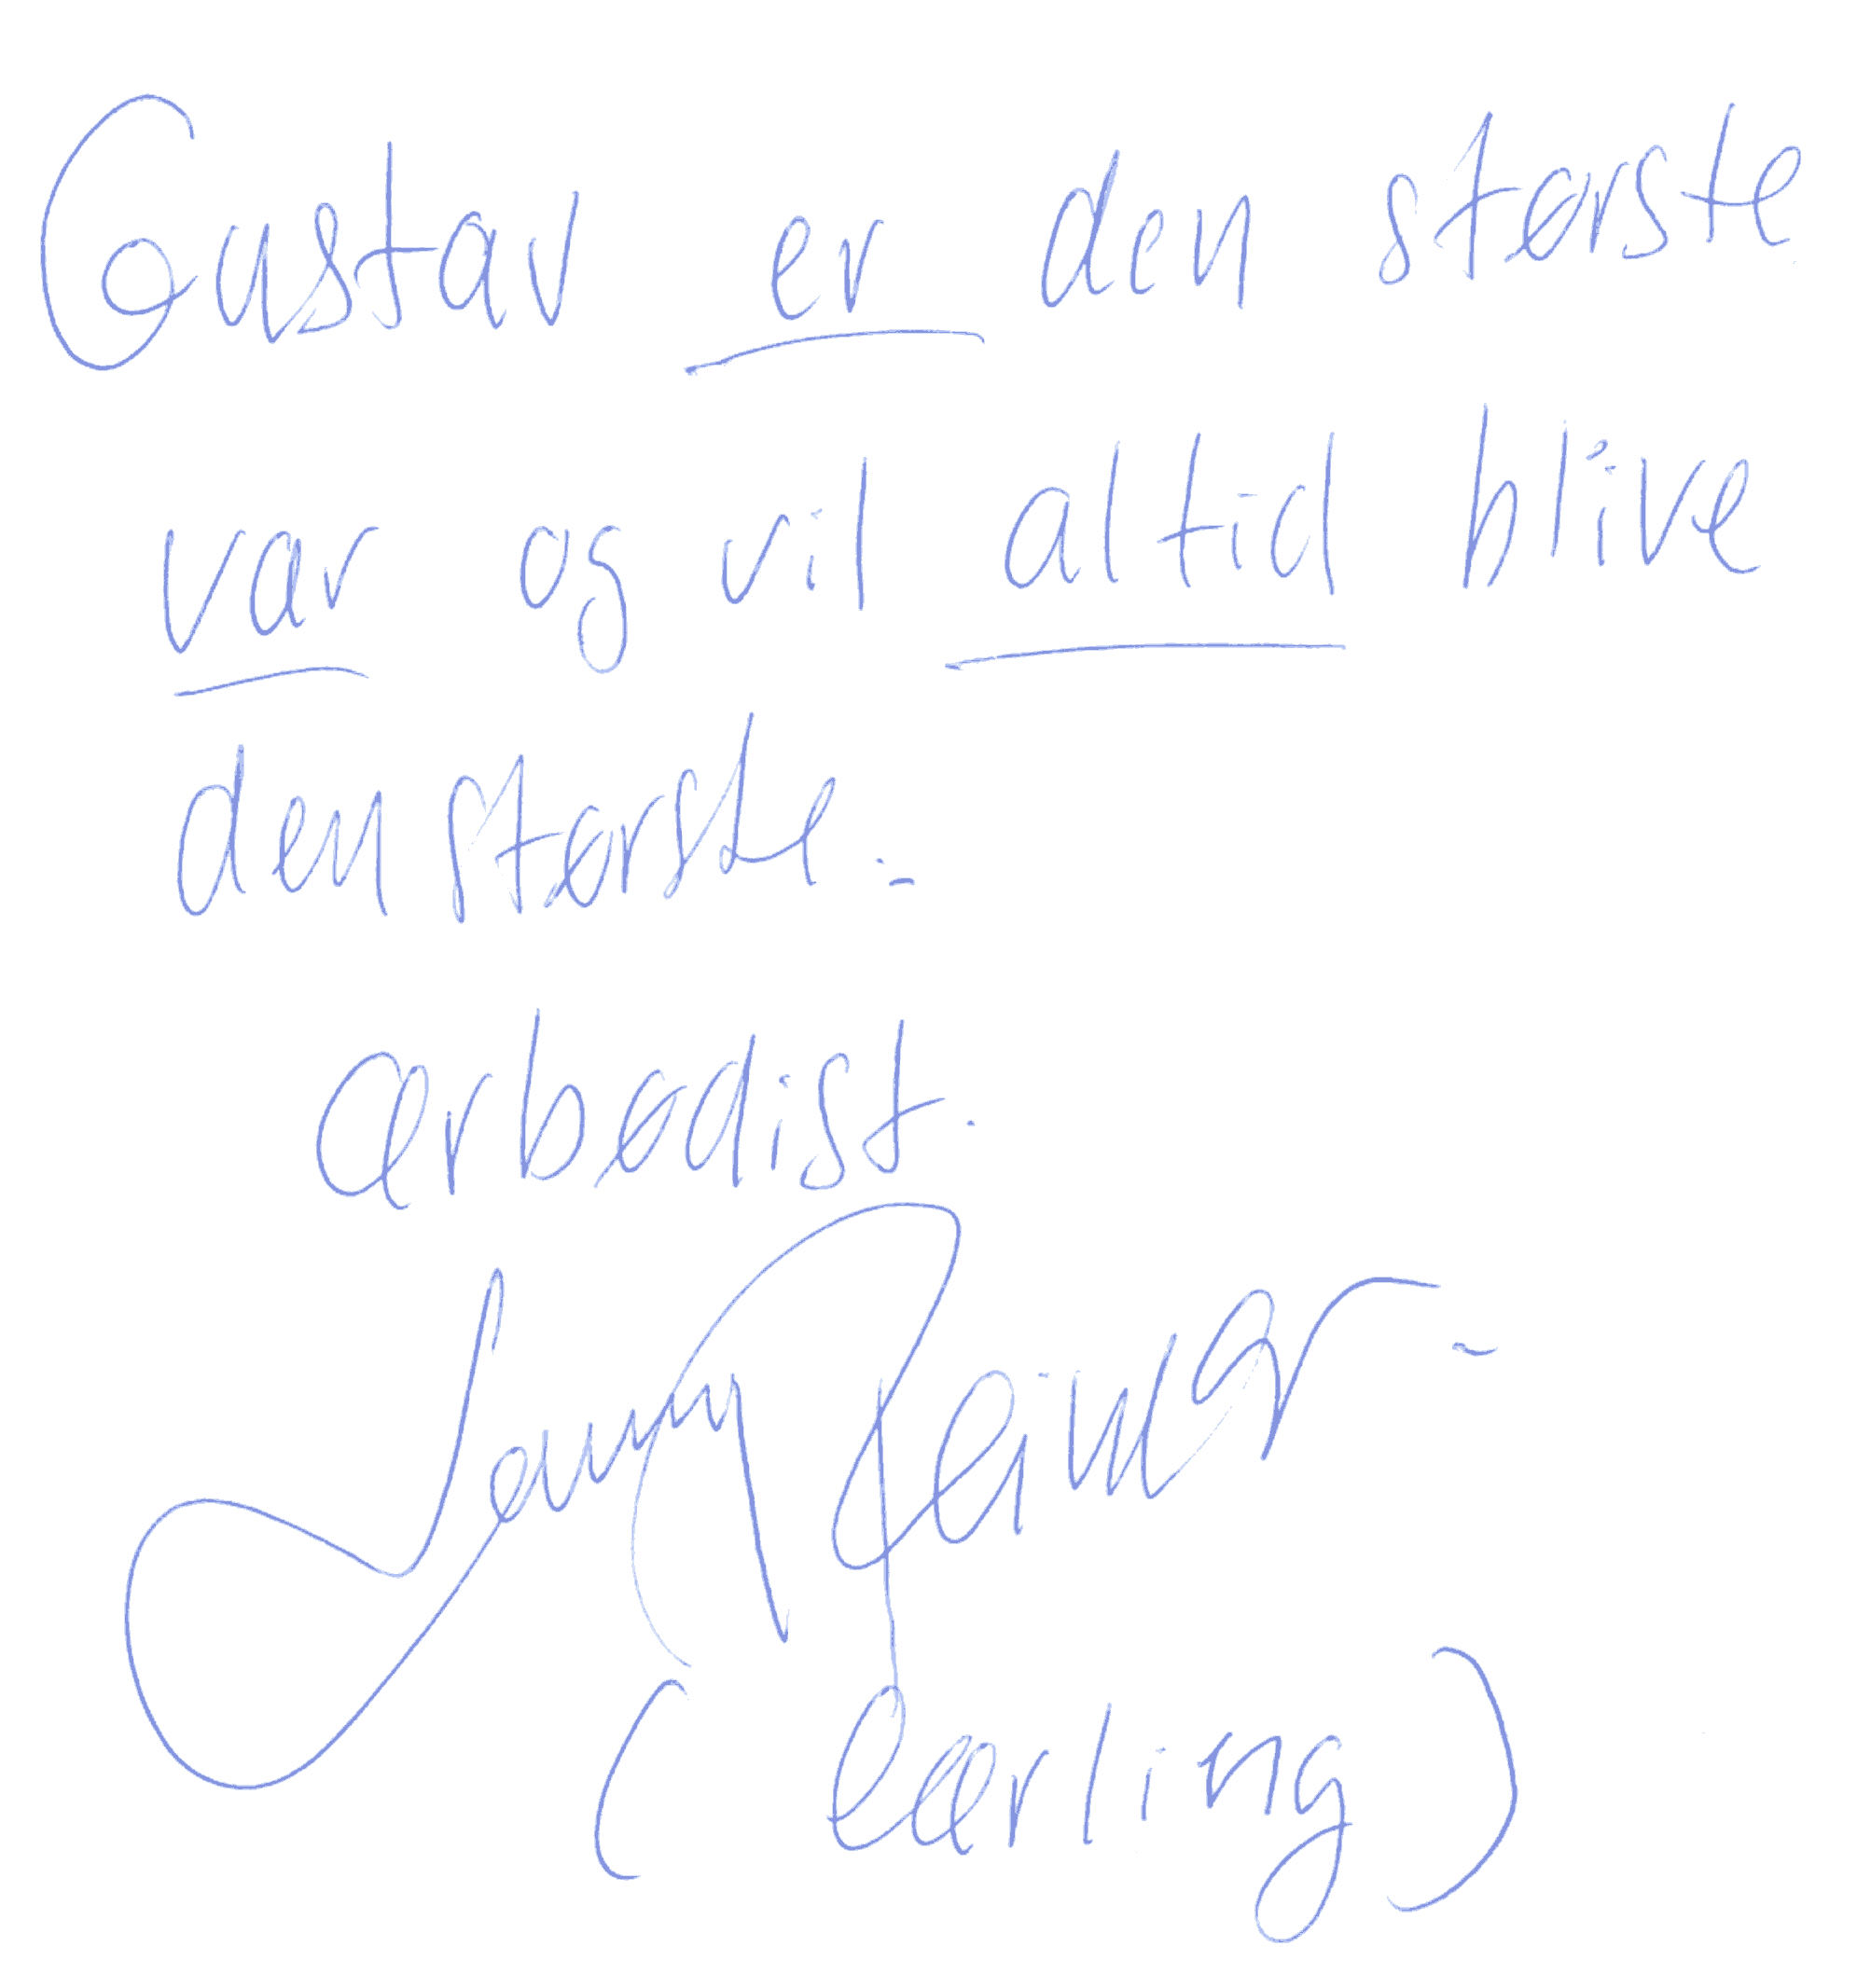 Gustav er den største
var og vil altid blive
den største.
ærbødist.
Reimar
(lærling)